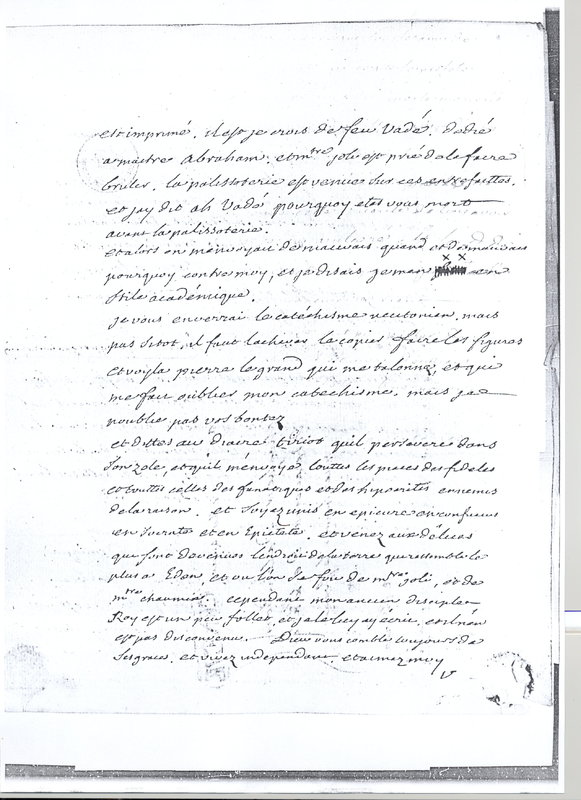 est imprimé. il est je crois de feu Vadé. dedié
a maitre Abraham. et mtre joli est prié de le faire
bruler. la palissoterie est venue sur ces entrefaittes.
et jay dit ah Vadé pourquoy etes vous mort
avant la palissoterie.
et alors on m'envoyait de mauvais quand et de mauvais
pourquoy contre moy, et je disais je m'en en
stile académique.
je vous enverrai le catechisme neutonien, mais
pas sitot, il faut l'achever le copier faire les figures
et voyla pierre le grand qui me talonne, et qui
me fait oublier mon catechisme. mais je
n'oublie pas vos bontez
et dittes au diacre tiriot quil persevere dans
son zele, et quil m'envoye touttes les pieces des fideles
et touttes celles des fanatiques et des hipocrites ennemis
de la raison. et soyez unis en epicure en confucius
en Socrate et en Epictete. et venez aux délices
qui sont devenues l'endroit de la terre qui ressemble le
plus a Eden, et ou l'on se fout de mtre joli, et de
mtre chaumeix. cependant mon ancien disciple
Roy est un peu follet, et je le luy ay écrit, et il n'en
est pas disconvenu. Dieu vous comble toujours de
ses graces, et vivez independant et aimez moy
V